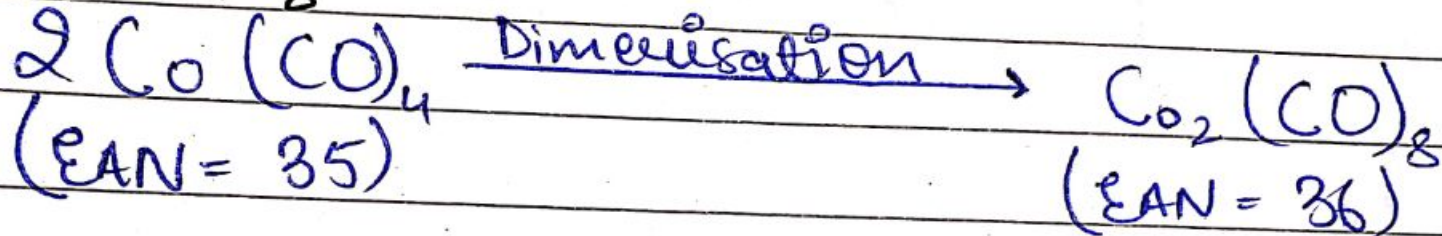 2 Co (CO)₄ Dimerisation → Co₂ (CO)₈
(EAN = 35) (EAN = 36)